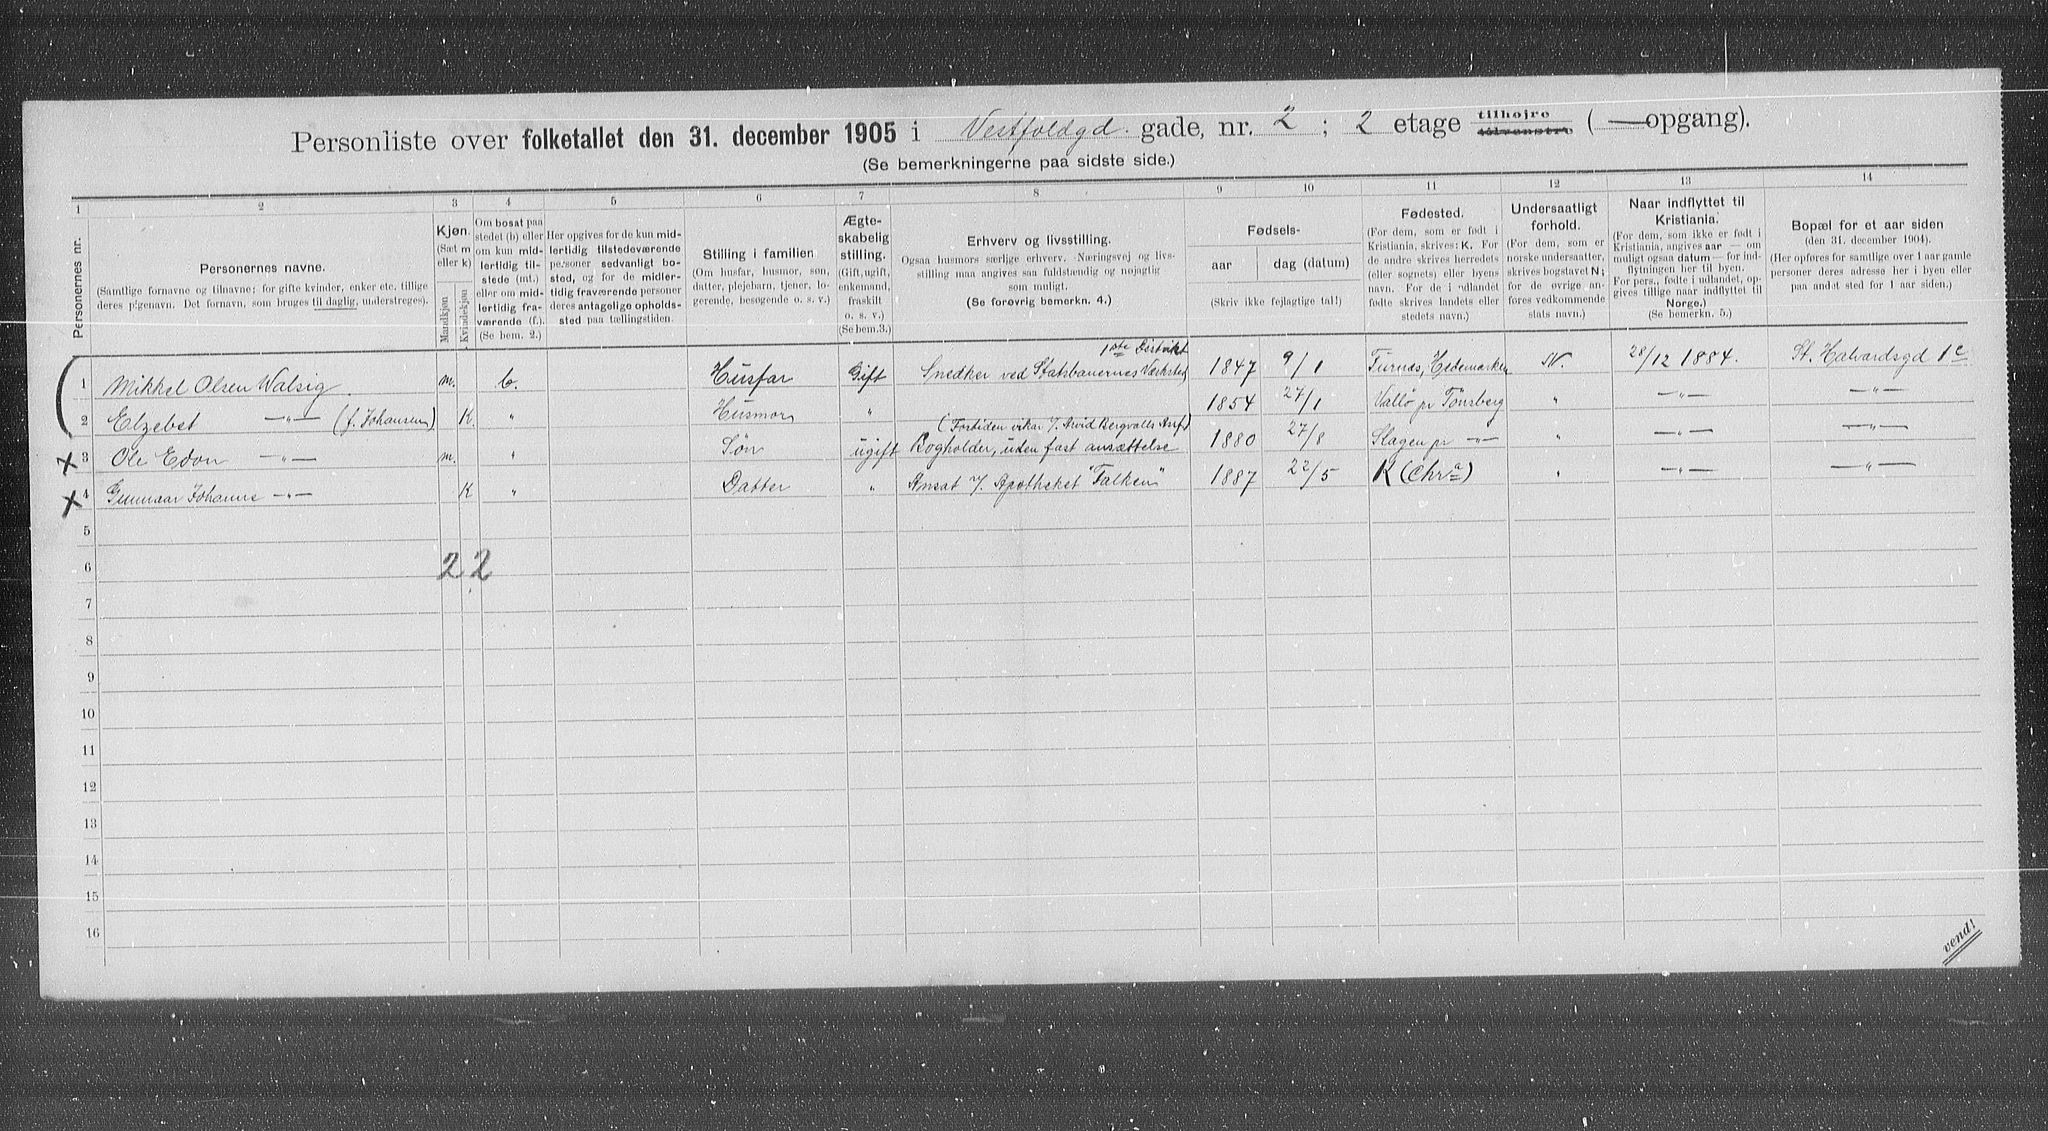 Personliste over folketallet den 31. december 1905 i Vestfoldgd. gade, nr. 2 ; 2 etage tilhøjre tilvenstre ( — opgang).
(Se bemerkningerne paa sidste side.)
1 2 3 4 5 6 7 8 9 10 11 12 13 14
Personernes nr.
Personernes navne.
(Samtlige fornavne og tilnavne; for gifte kvinder, enker etc. tillige
deres pigenavn. Det fornavn, som bruges til daglig, understreges).
Kjøn.
(Sæt m
eller k)
Mandkjøn.
Kvindekjøn
Om bosat paa
stedet (b) eller
om kun mid-
lertidig til-
stede (mt.)
eller om mid-
lertidig fra-
værende (f.).
(Se bem. 2.)
Her opgives for de kun mid-
lertidig tilstedeværende
personer sedvanlig bo-
sted, og for de midler-
tidig fraværende personer
deres antagelige opholds-
sted paa tællingstiden.
Stilling i familien
(Om husfar, husmor, søn,
datter, plejebarn, tjener, lo-
gerende, besøgende o. s. v.)
Ægte-
skabelig
stilling.
(Gift, ugift,
enkemand,
fraskilt
o. s. v.)
(Se bem.3.)
Erhverv og livsstilling.
Ogsaa husmors særlige erhverv. Næringsvej og livs-
stilling maa angives saa fuldstændig og nøjagtig
som muligt.
(Se forøvrig bemerkn. 4.)
Fødsels-
aar dag (datum)
(Skriv ikke fejlagtige tal!)
Fødested.
(For dem, som er født i
Kristiania, skrives: K. For
de andre skrives herredets
(eller sognets) eller byens
navn. For de i udlandet
fødte skrives landets eller
stedets navn.)
Undersaatligt
forhold.
(For dem, som er
norske undersaatter,
skrives bogstavet N;
for de øvrige an-
føres vedkommende
stats navn.)
Naar indflyttet til
Kristiania.
(For dem, som ikke er født i
Kristiania, angives aar — om
muligt ogsaa datum — for ind-
flytningen her til byen.
For pers., født i udlandet, op-
gives tillige naar indflyttet til
Norge.)
(Se bemerkn. 5.)
Bopæl for et aar siden
(den 31. december 1904).
(Her opføres for samtlige over 1 aar gamle
personer deres adresse her i byen eller
paa andet sted for 1 aar siden.)
1ste Distrikt
1 Mikkel Olsen Walsig m. b. Husfar Gift Snedker ved Statsbanernes Værksted 1847 9/1 Furnæs, Hedemarken N. 28/12 1884. St. Halvardsgd 1c
2 Elzebet —"— (f. Johansen) K " Husmor " 1854 27/1 Vallø pr Tønsberg " —"— —"—
(Fortiden vikar i/ Arvid Bergvalls Asf.)
3 Ole Edon —"— m. " Søn ugift Bogholder, uden fast ansættelse 1880 27/8 Slagen pr —"— " —"— —"—
4 Gunnaar Johanne —"— K " Datter " Ansat i/ Apotheket "Falken" 1887 22/5 K (Chr.a) " —"— —"—
5
6 2 2
7
8
9
10
11
12
13
14
15
16
vend!